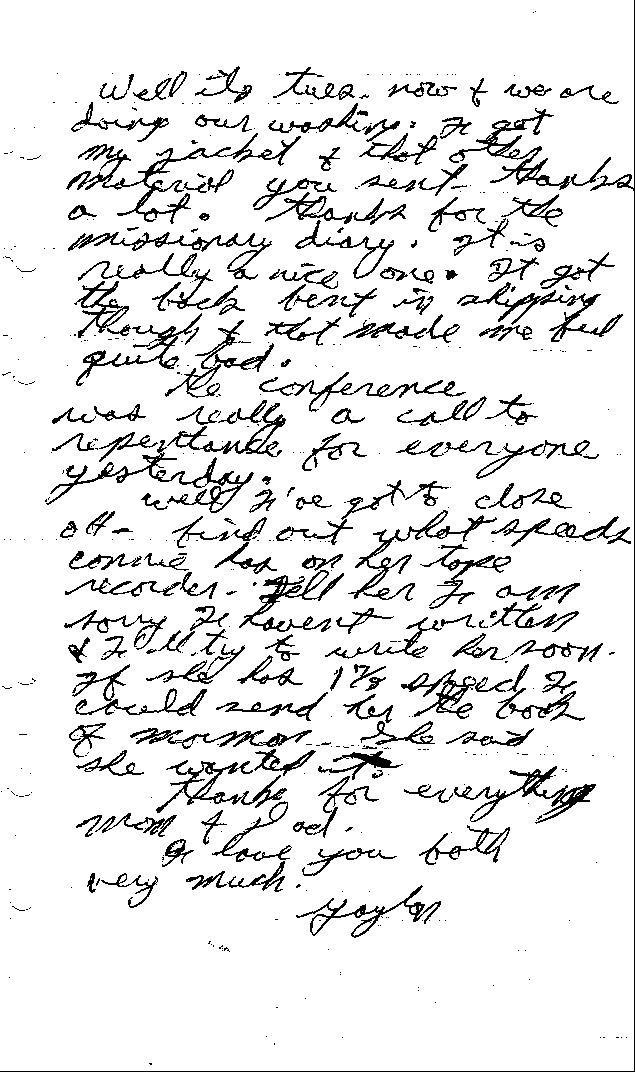 Well its tues. now & we are
doing our washing. I got
my jacket & that other
material you sent - thanks
a lot. thanks for the
missionary diary. It is
really a nice one. It got
the back bent in shipping
though & that made me feel
quite bad.
the conference
was really a call to
repentance for everyone
yesterday.
well I've got to close
off - find out what speeds
connie has on her tape
recorder. Tell her I am
sorry I havent written
& I'll try to write her soon.
If she has 1 7/8 speed I
could send her the book
of mormon. She said
she wanted it.
thanks for everything
mom & dad.
I love you both
very much.
Gaylen